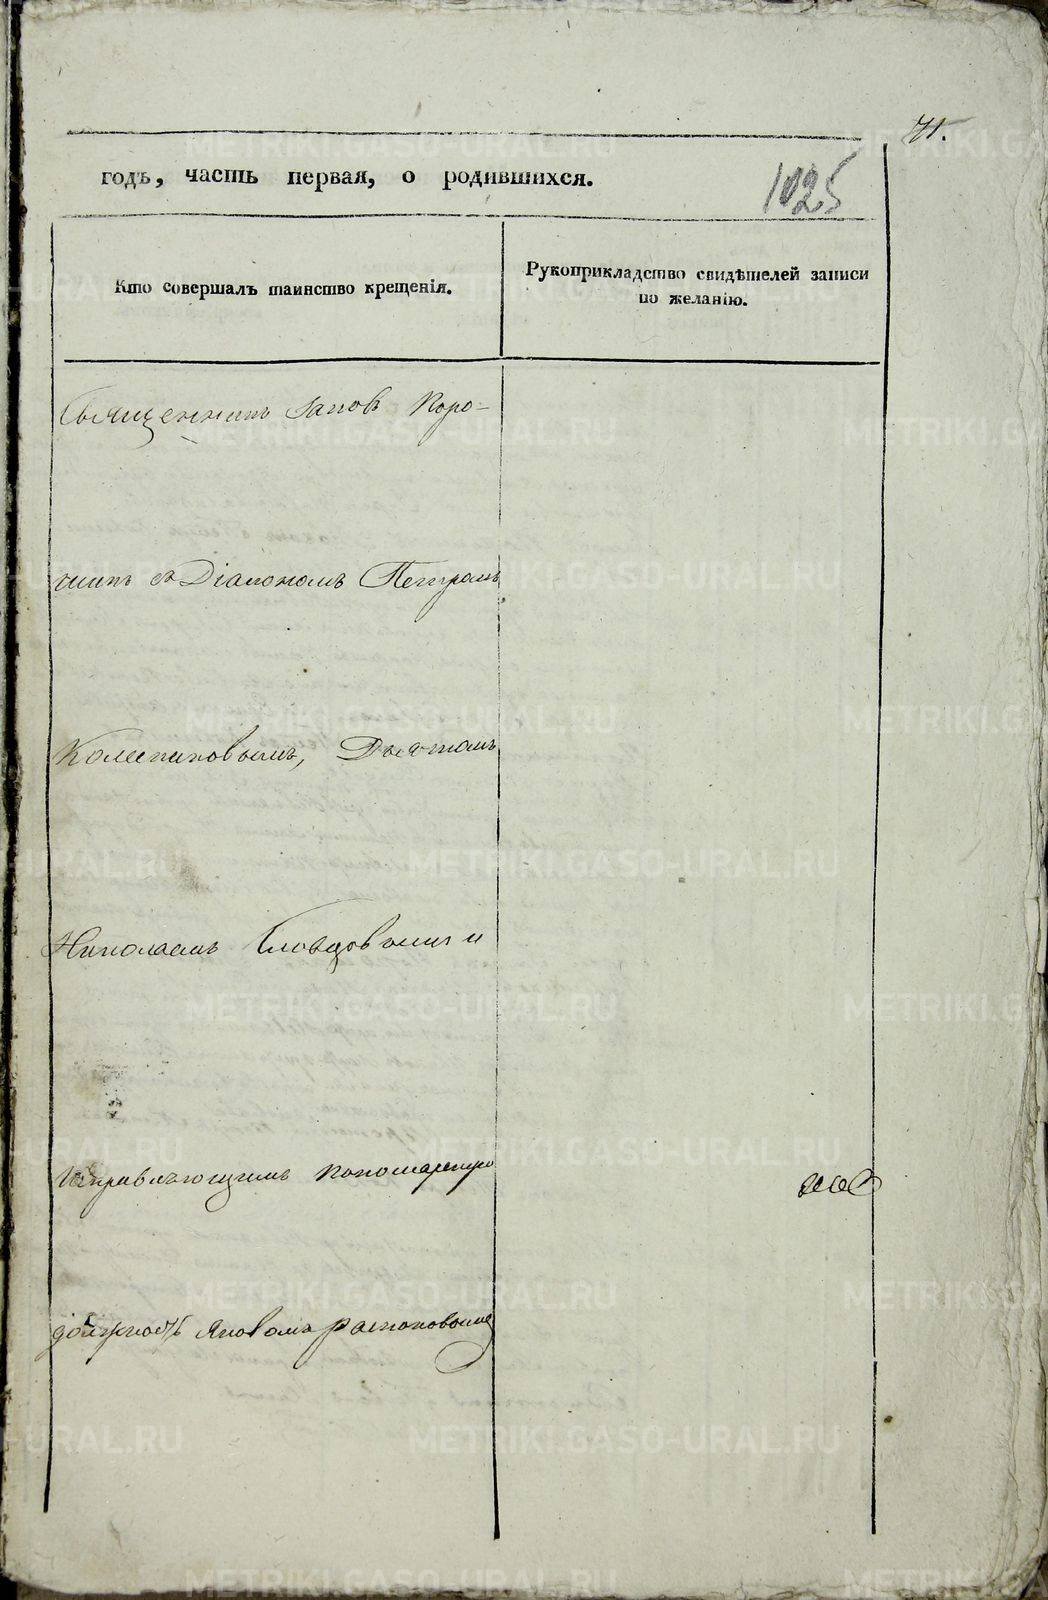 71.
годъ, часть первая, о родившихся.
1025
Кто совершалъ таинство крещенія.
Рукоприкладство свидѣтелей записи
по желанію.
Священникъ Іаковъ Коро-
чкинъ съ Діакономъ Петромъ
Колесниковымъ, Дьячкомъ
Николаемъ Словцовымъ и
Исправляющимъ пономарскую
должность Яковомъ
METRIKI.GASO-URAL.RU